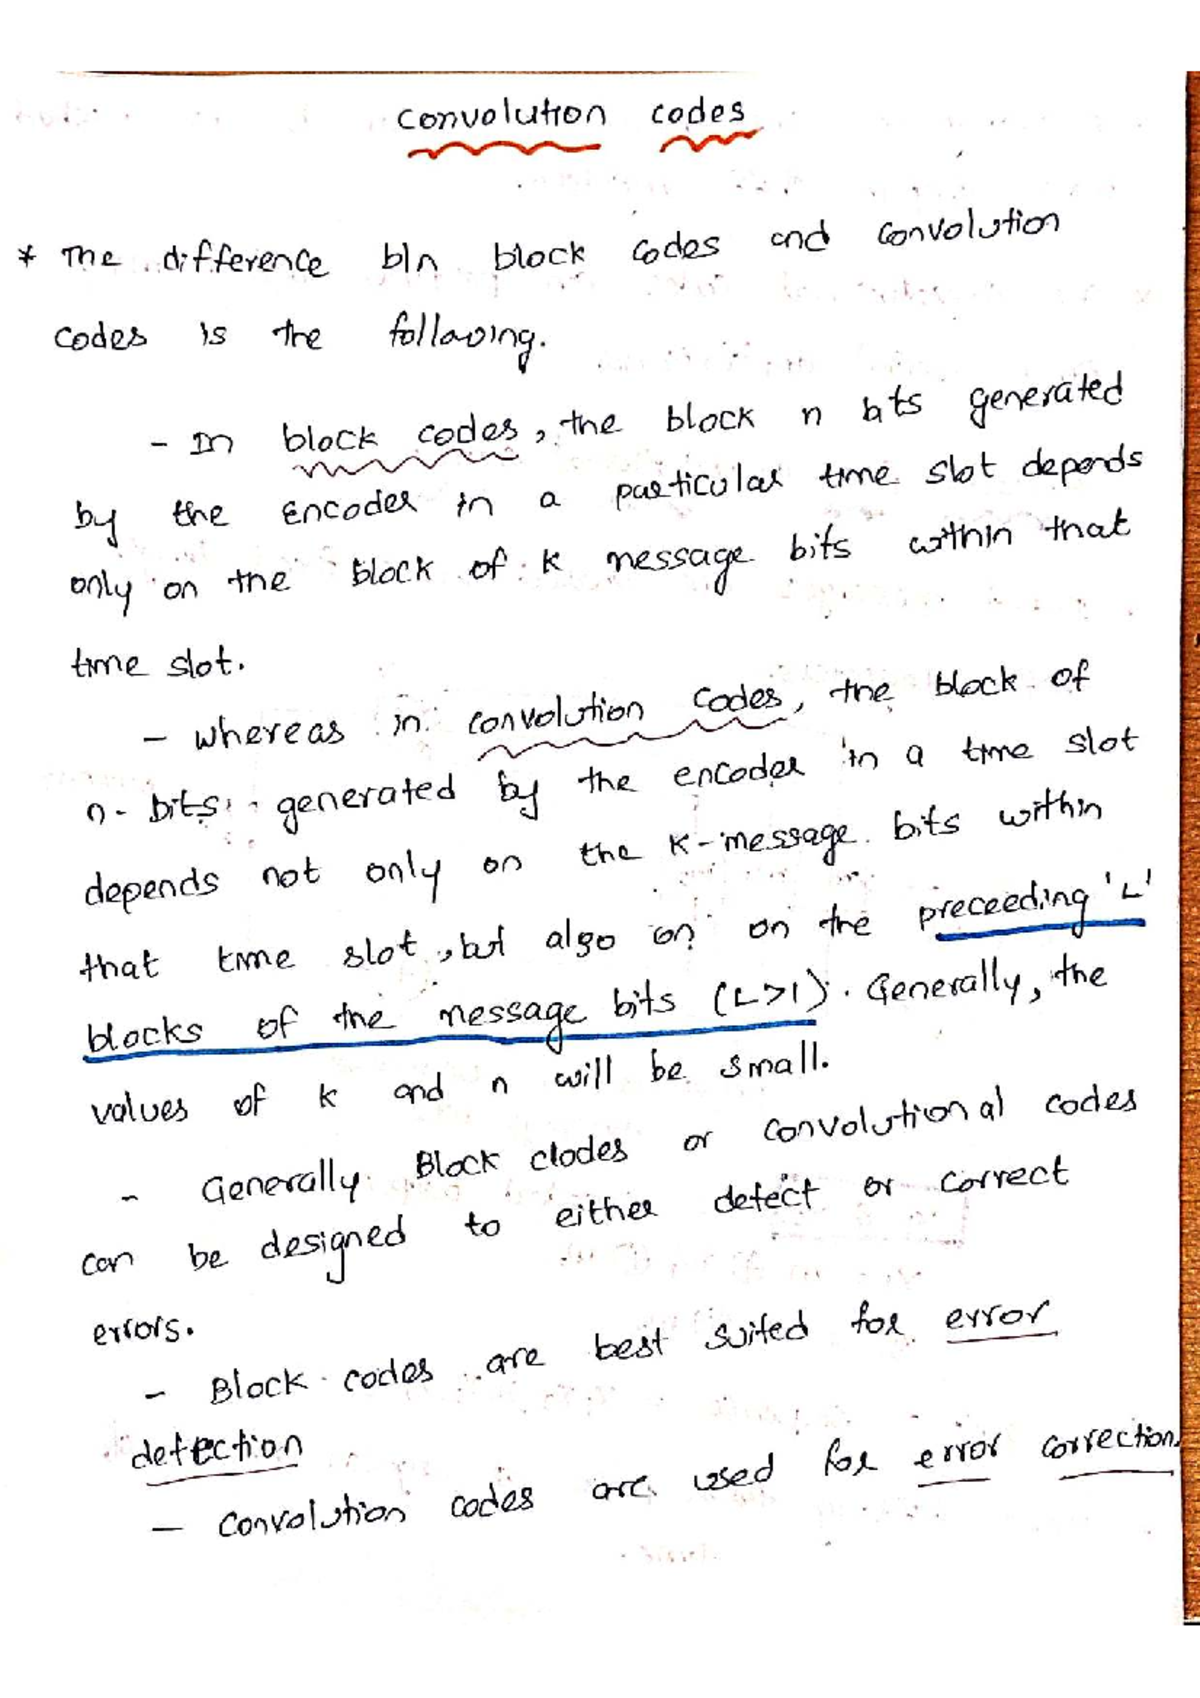 convolution codes
* The difference b/n block codes and convolution
codes is the following.
- In block codes, the block n bits generated
by the Encoder in a particular time slot depends
only on the block of k message bits within that
time slot.
- whereas in convolution codes, the block of
n-bits generated by the encoder in a time slot
depends not only on the k-message bits within
that time slot, but also on on the preceeding 'L'
blocks of the message bits (L>1). Generally, the
values of k and n will be small.
- Generally Block clodes or convolutional codes
can be designed to either detect or correct
errors.
- Block codes are best suited for error
detection
- convolution codes are used for error correction.